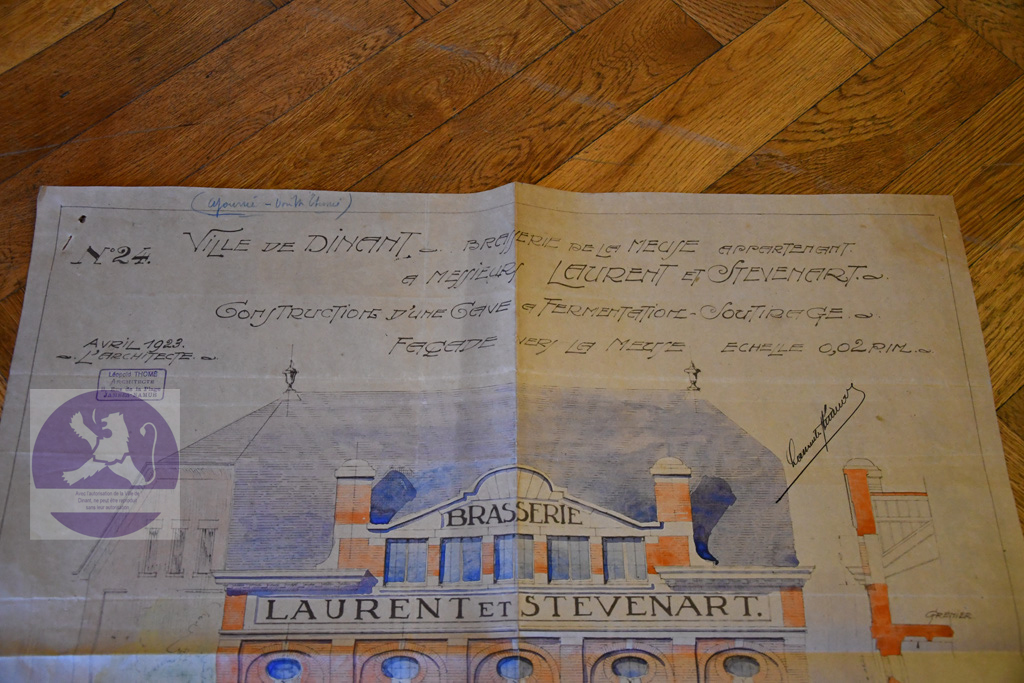 (ajourné - voir Thomé)
N° 24.
VILLE DE DINANT. BRASSERIE DE LA MEUSE APPARTENANT
A MESSIEURS LAURENT ET STEVENART.
CONSTRUCTION D'UNE CAVE A FERMENTATION - SOUTIRAGE.
AVRIL 1923.
L'ARCHITECTE.
FAÇADE VERS LA MEUSE ECHELLE 0,02 P.M.
Léopold THOMÉ
ARCHITECTE
Rue de la Plage
JAMBES-NAMUR
Avec l'autorisation de la Ville de
Dinant, ne peut être reproduit
sans son autorisation.
BRASSERIE
LAURENT ET STEVENART.
GRENIER